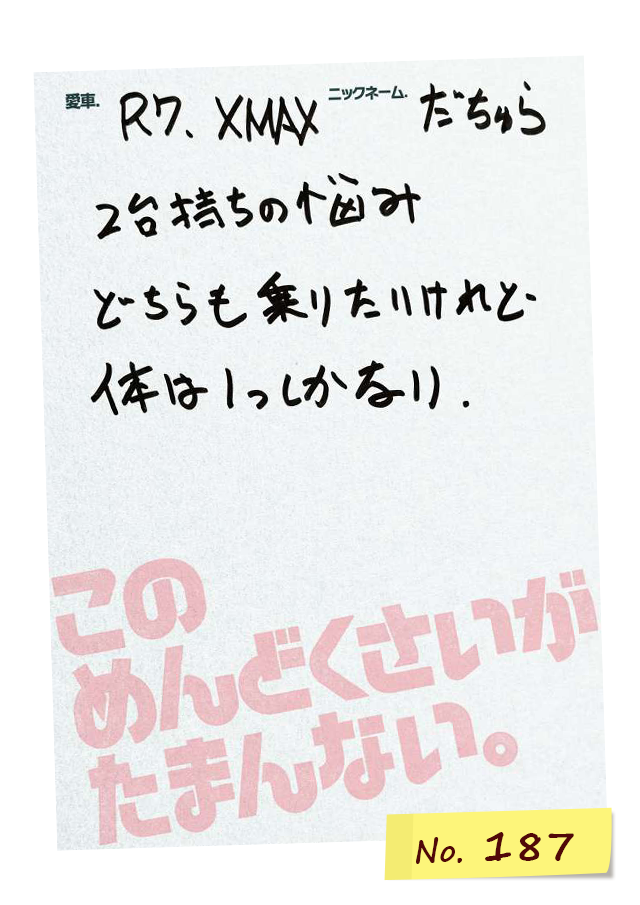 愛車. R7、XMAX ニックネーム. だちゅら
2台持ちの悩み
どちらも乗りたいけれど
体は1っしかない.
この
めんどくさいが
たまんない。
No. 187